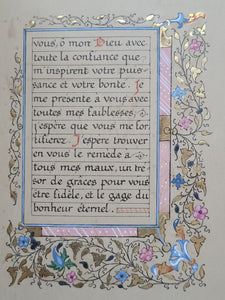 vous, ô mon Dieu avec
toute la confiance que
m'inspirent votre puis-
sance et votre bonté. Je
me présente à vous avec
toutes mes faiblesses,
j'espère que vous me for-
tifierez. J'espère trouver
en vous le remède à
tous mes maux, un tre-
sor de grâces pour vous
être fidèle, et le gage du
bonheur éternel.